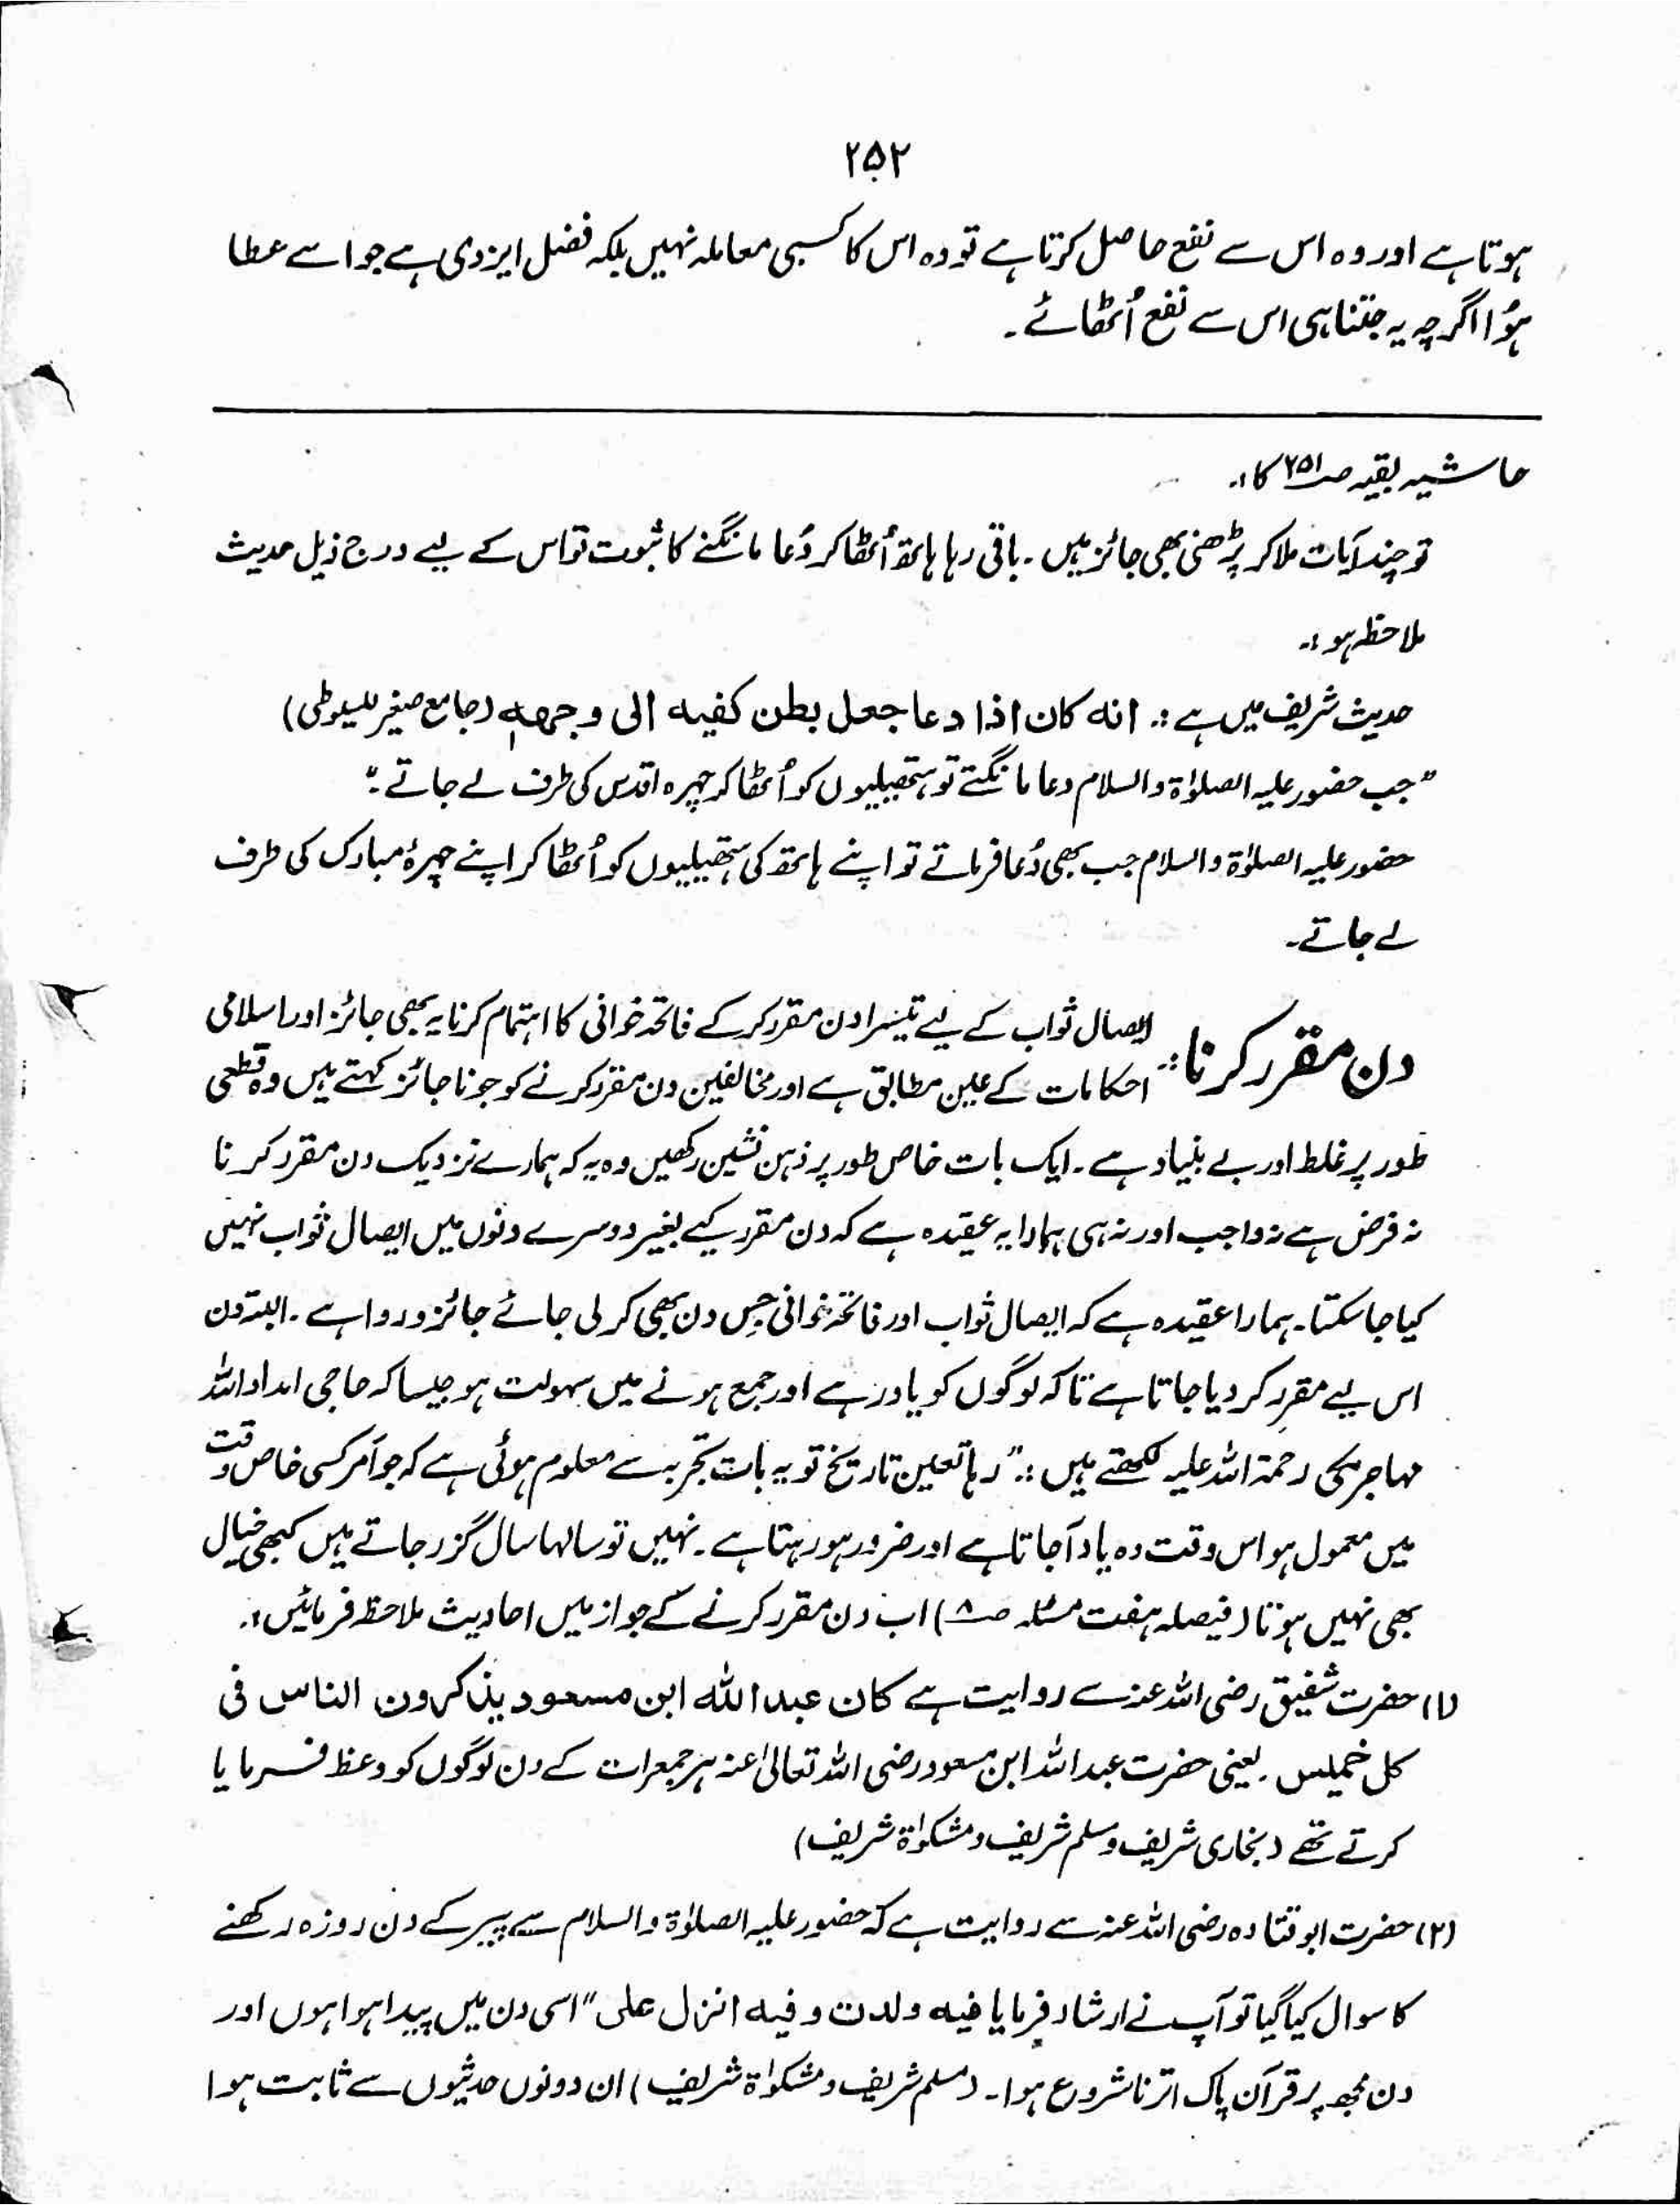 ۲۵۲
ہوتا ہے اور وہ اس سے نفع حاصل کرتا ہے تو وہ اس کا کسبی معاملہ نہیں بلکہ فضل ایزدی ہے جو اسے عطا
ہُوا اگرچہ یہ جتنا ہی اس سے نفع اُٹھائے۔
حاشیہ بقیہ صـ۲۵۱ کا:۔
تو چند آیات ملا کر پڑھنی بھی جائز ہیں۔ باقی رہا ہاتھ اُٹھا کر دُعا مانگنے کا ثبوت تو اس کے لیے درج ذیل حدیث
ملاحظہ ہو:۔
حدیث شریف میں ہے:۔ انہ کان اذا دعا جعل بطن کفیہ الی وجہہ (جامع صغیر للسیوطی)
"جب حضور علیہ الصلوٰۃ والسلام دعا مانگتے تو ہتھیلیوں کو اُٹھا کر چہرہ اقدس کی طرف لے جاتے"۔
حضور علیہ الصلوٰۃ والسلام جب بھی دُعا فرماتے تو اپنے ہاتھ کی ہتھیلیوں کو اُٹھا کر اپنے چہرۂ مبارک کی طرف
لے جاتے۔
دن مقرر کرنا:۔ ایصال ثواب کے لیے تیسرا دن مقرر کر کے فاتحہ خوانی کا اہتمام کرنا یہ بھی جائز اور اسلامی
احکامات کے عین مطابق ہے اور مخالفین دن مقرر کرنے کو جو ناجائز کہتے ہیں وہ قطعی
طور پر غلط اور بے بنیاد ہے۔ ایک بات خاص طور پر ذہن نشین رکھیں وہ یہ کہ ہمارے نزدیک دن مقرر کرنا
نہ فرض ہے نہ واجب اور نہ ہی ہمارا یہ عقیدہ ہے کہ دن مقرر کیے بغیر دوسرے دنوں میں ایصال ثواب نہیں
کیا جا سکتا۔ ہمارا عقیدہ ہے کہ ایصال ثواب اور فاتحہ خوانی جس دن بھی کر لی جائے جائز و روا ہے۔ البتہ دن
اس لیے مقرر کر دیا جاتا ہے تاکہ لوگوں کو یاد رہے اور جمع ہونے میں سہولت ہو جیسا کہ حاجی امداد اللہ
مہاجر مکی رحمۃ اللہ علیہ لکھتے ہیں:۔ "رہا تعین تاریخ تو یہ بات تجربہ سے معلوم ہوئی ہے کہ جو امر کسی خاص وقت
میں معمول ہو اس وقت وہ یاد آجاتا ہے اور ضرور ہو رہتا ہے۔ نہیں تو سالہا سال گزر جاتے ہیں کبھی خیال
بھی نہیں ہوتا (فیصلہ ہفت مسئلہ صـ۸) اب دن مقرر کرنے کے جواز میں احادیث ملاحظہ فرمائیں:۔
(۱) حضرت شفیق رضی اللہ عنہ سے روایت ہے کان عبد اللہ ابن مسعود یذکرون الناس فی
کل خمیس۔ یعنی حضرت عبد اللہ ابن مسعود رضی اللہ تعالیٰ عنہ ہر جمعرات کے دن لوگوں کو وعظ فرمایا
کرتے تھے (بخاری شریف و مسلم شریف و مشکوٰۃ شریف)
(۲) حضرت ابو قتادہ رضی اللہ عنہ سے روایت ہے کہ حضور علیہ الصلوٰۃ والسلام سے پیر کے دن روزہ رکھنے
کا سوال کیا گیا تو آپ نے ارشاد فرمایا فیہ ولدت و فیہ انزل علی "اسی دن میں پیدا ہوا ہوں اور
دن مجھ پر قرآن پاک اترنا شروع ہوا۔ (مسلم شریف و مشکوٰۃ شریف) ان دونوں حدیثوں سے ثابت ہوا